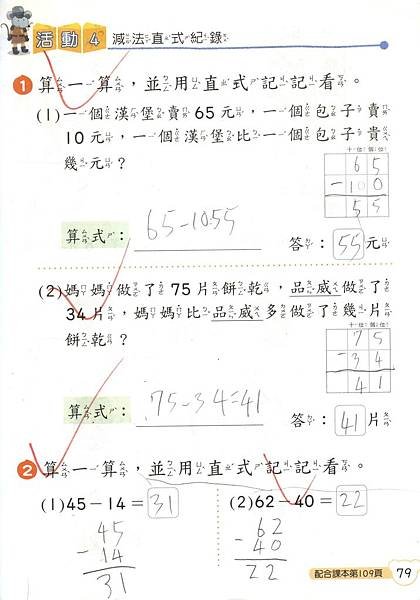 活動4 減法直式紀錄
1 算一算，並用直式記記看。
(1)一個漢堡賣65元，一個包子賣
10元，一個漢堡比一個包子貴
幾元？
十位 個位
65
-10
55
算式：65-1055
答：55元
(2)媽媽做了75片餅乾，品威做了
34片，媽媽比品威多做了幾片
餅乾？
十位 個位
75
-34
41
算式：75-34=41
答：41片
2 算一算，並用直式記記看。
(1)45-14=31 (2)62-40=22
45
-14
31
62
-40
22
配合課本第109頁 79